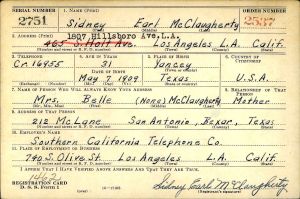 SERIAL NUMBER 1. NAME (Print) ORDER NUMBER
2751 Sidney Earl McClaugherty 2587
(First) (Middle) (Last)
2. ADDRESS (Print) 1807 Hillsboro Ave, L.A.
465 S. Holt Ave. Los Angeles L.A. Calif.
3. TELEPHONE 4. AGE IN YEARS 5. PLACE OF BIRTH 6. COUNTRY OF CITIZENSHIP
31 Yancey
Cr. 16455 DATE OF BIRTH
May 7, 1909 Texas U.S.A.
7. NAME OF PERSON WHO WILL ALWAYS KNOW YOUR ADDRESS 8. RELATIONSHIP OF THAT PERSON
Mrs. Belle (None) McClaugherty Mother
9. ADDRESS OF THAT PERSON
212 McLane San Antonio, Bexar, Texas
10. EMPLOYER'S NAME
Southern California Telephone Co.
11. PLACE OF EMPLOYMENT OR BUSINESS
740 S. Olive St. Los Angeles L.A. Calif.
I AFFIRM THAT I HAVE VERIFIED ABOVE ANSWERS AND THAT THEY ARE TRUE.
REGISTRATION CARD
D. S. S. Form 1
Sidney Earl McClaugherty